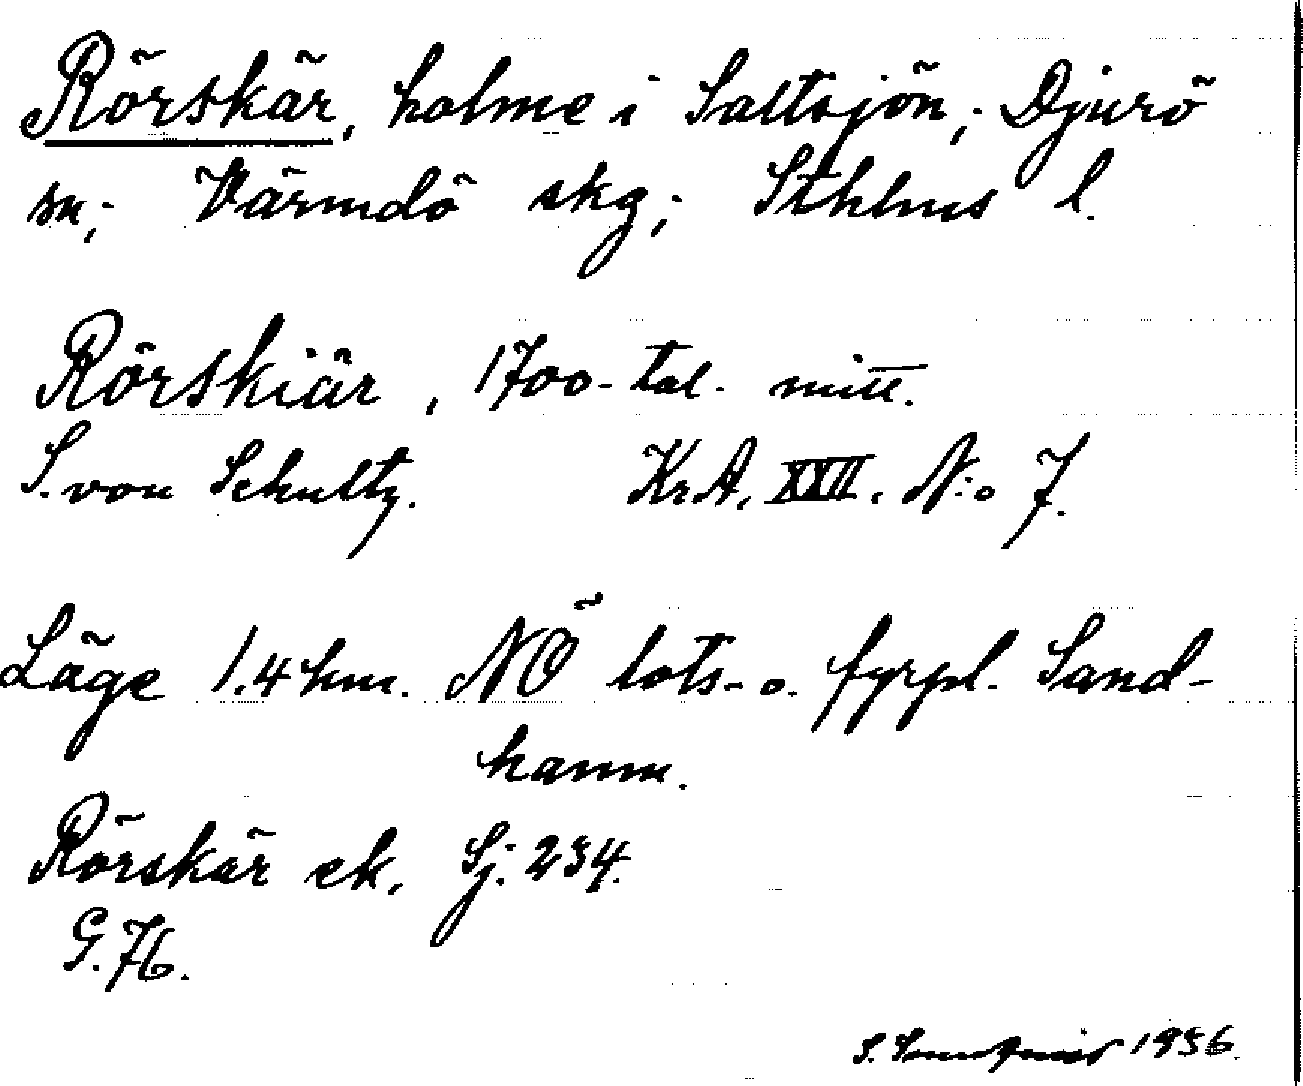 Rörskär, holme i Saltsjön; Djurö
sn; Värmdö skg; Sthlms l.
Rörskiär, 1700-tal. mitt.
S. von Schultz. KrA. XXII. N:o 7.
Läge 1.4 km. NÖ lots- o. fyrpl. Sand-
hamn.
Rörskär ek. Sj. 234.
G. 76.
S. 1936.